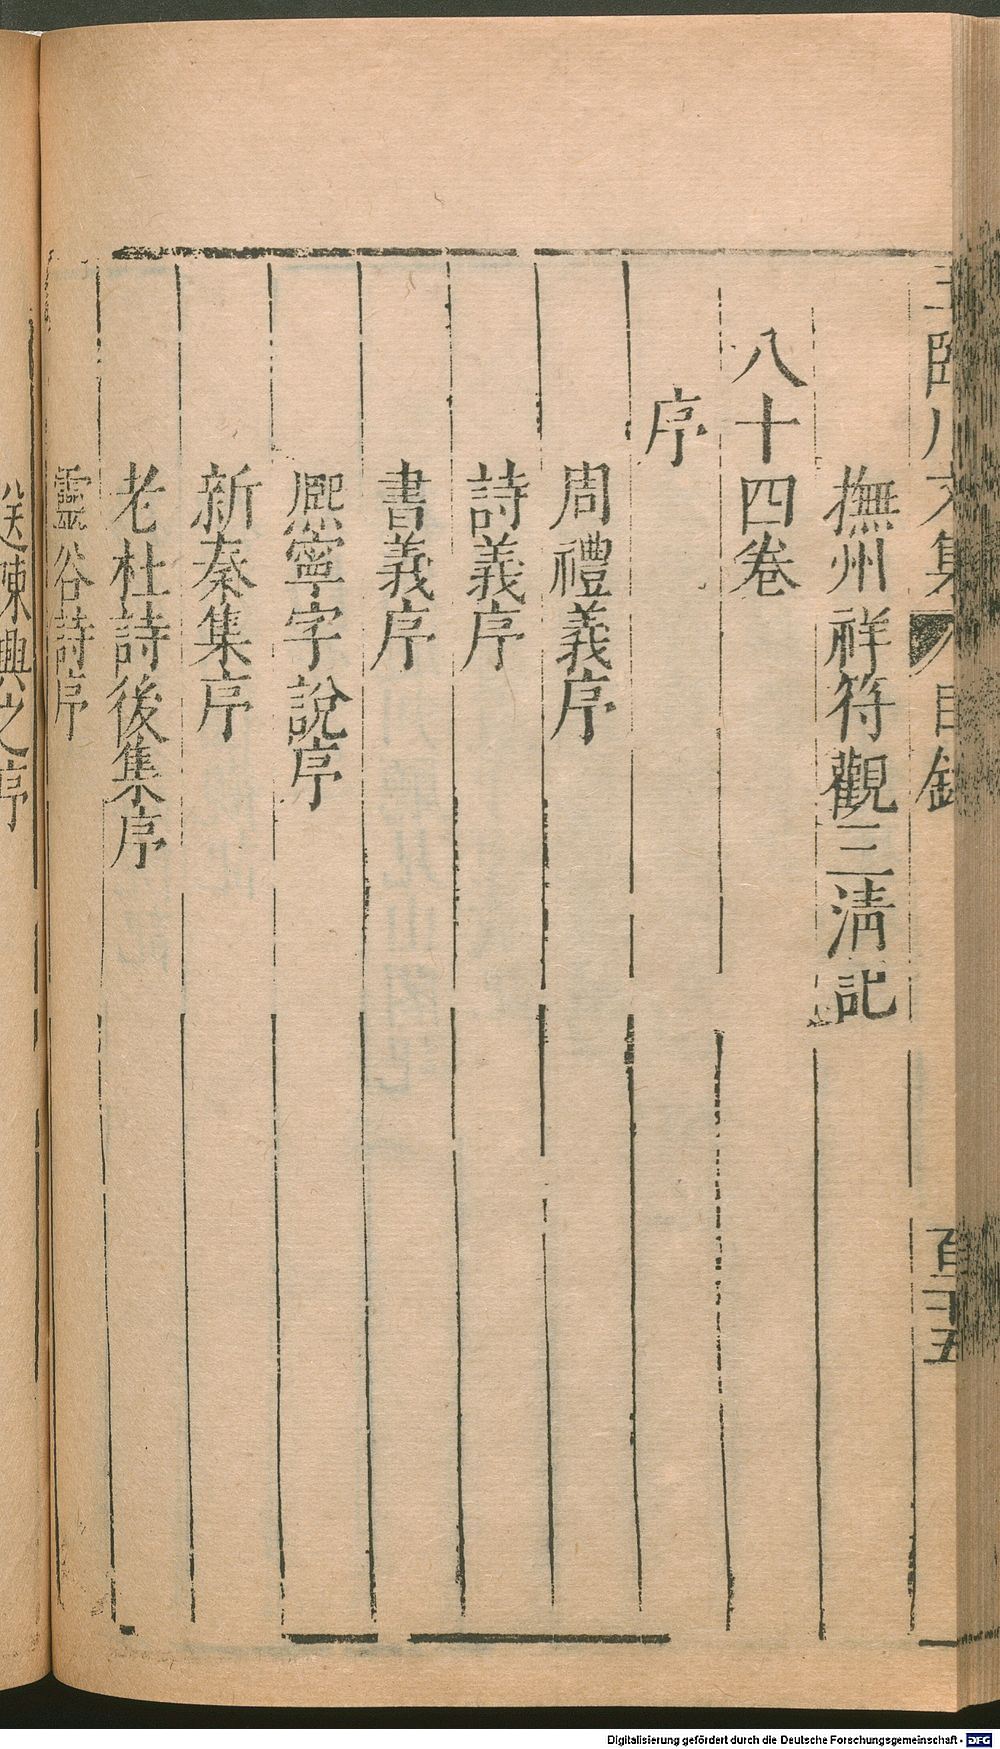 王臨川文集 目錄 百二十五
撫州祥符觀三淸記
八十四卷
序
周禮義序
詩義序
書義序
熈寧字說序
新秦集序
老杜詩後集序
靈谷詩序
送陳興之序
Digitalisierung gefördert durch die Deutsche Forschungsgemeinschaft - DFG